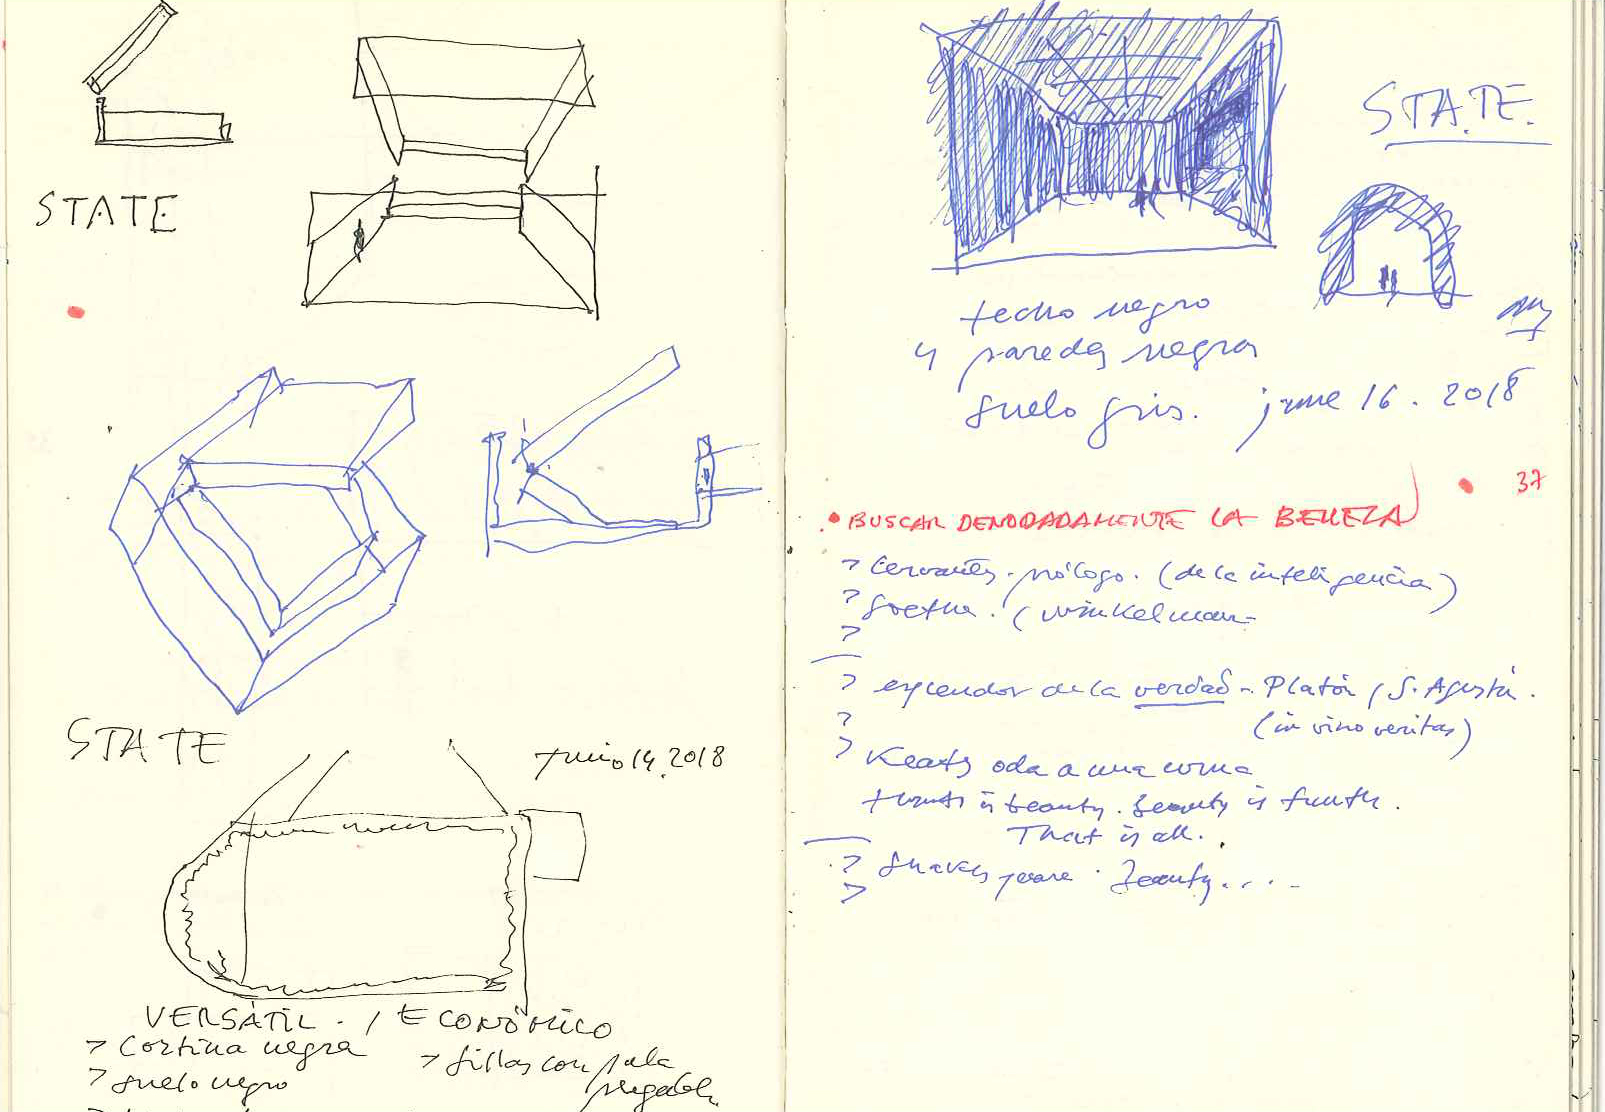 STATE
STATE
junio 14. 2018
VERSÀTIL. / ECONÓMICO
> Cortina negra
> suelo negro
> sillas con pala
plegable
STATE.
techo negro
4 paredes negras
suelo gris. june 16. 2018
37
• BUSCAR DENODADAMENTE LA BELLEZA
> Cervantes. prólogo. (de la inteligencia)
> Goethe. (Winkelman
>
> esplendor de la verdad - Platón / S. Agustín.
> (in vino veritas)
> Keats oda a una urna
truth is beauty. Beauty is truth.
That is all.
> Shakespeare. Beauty.....
>